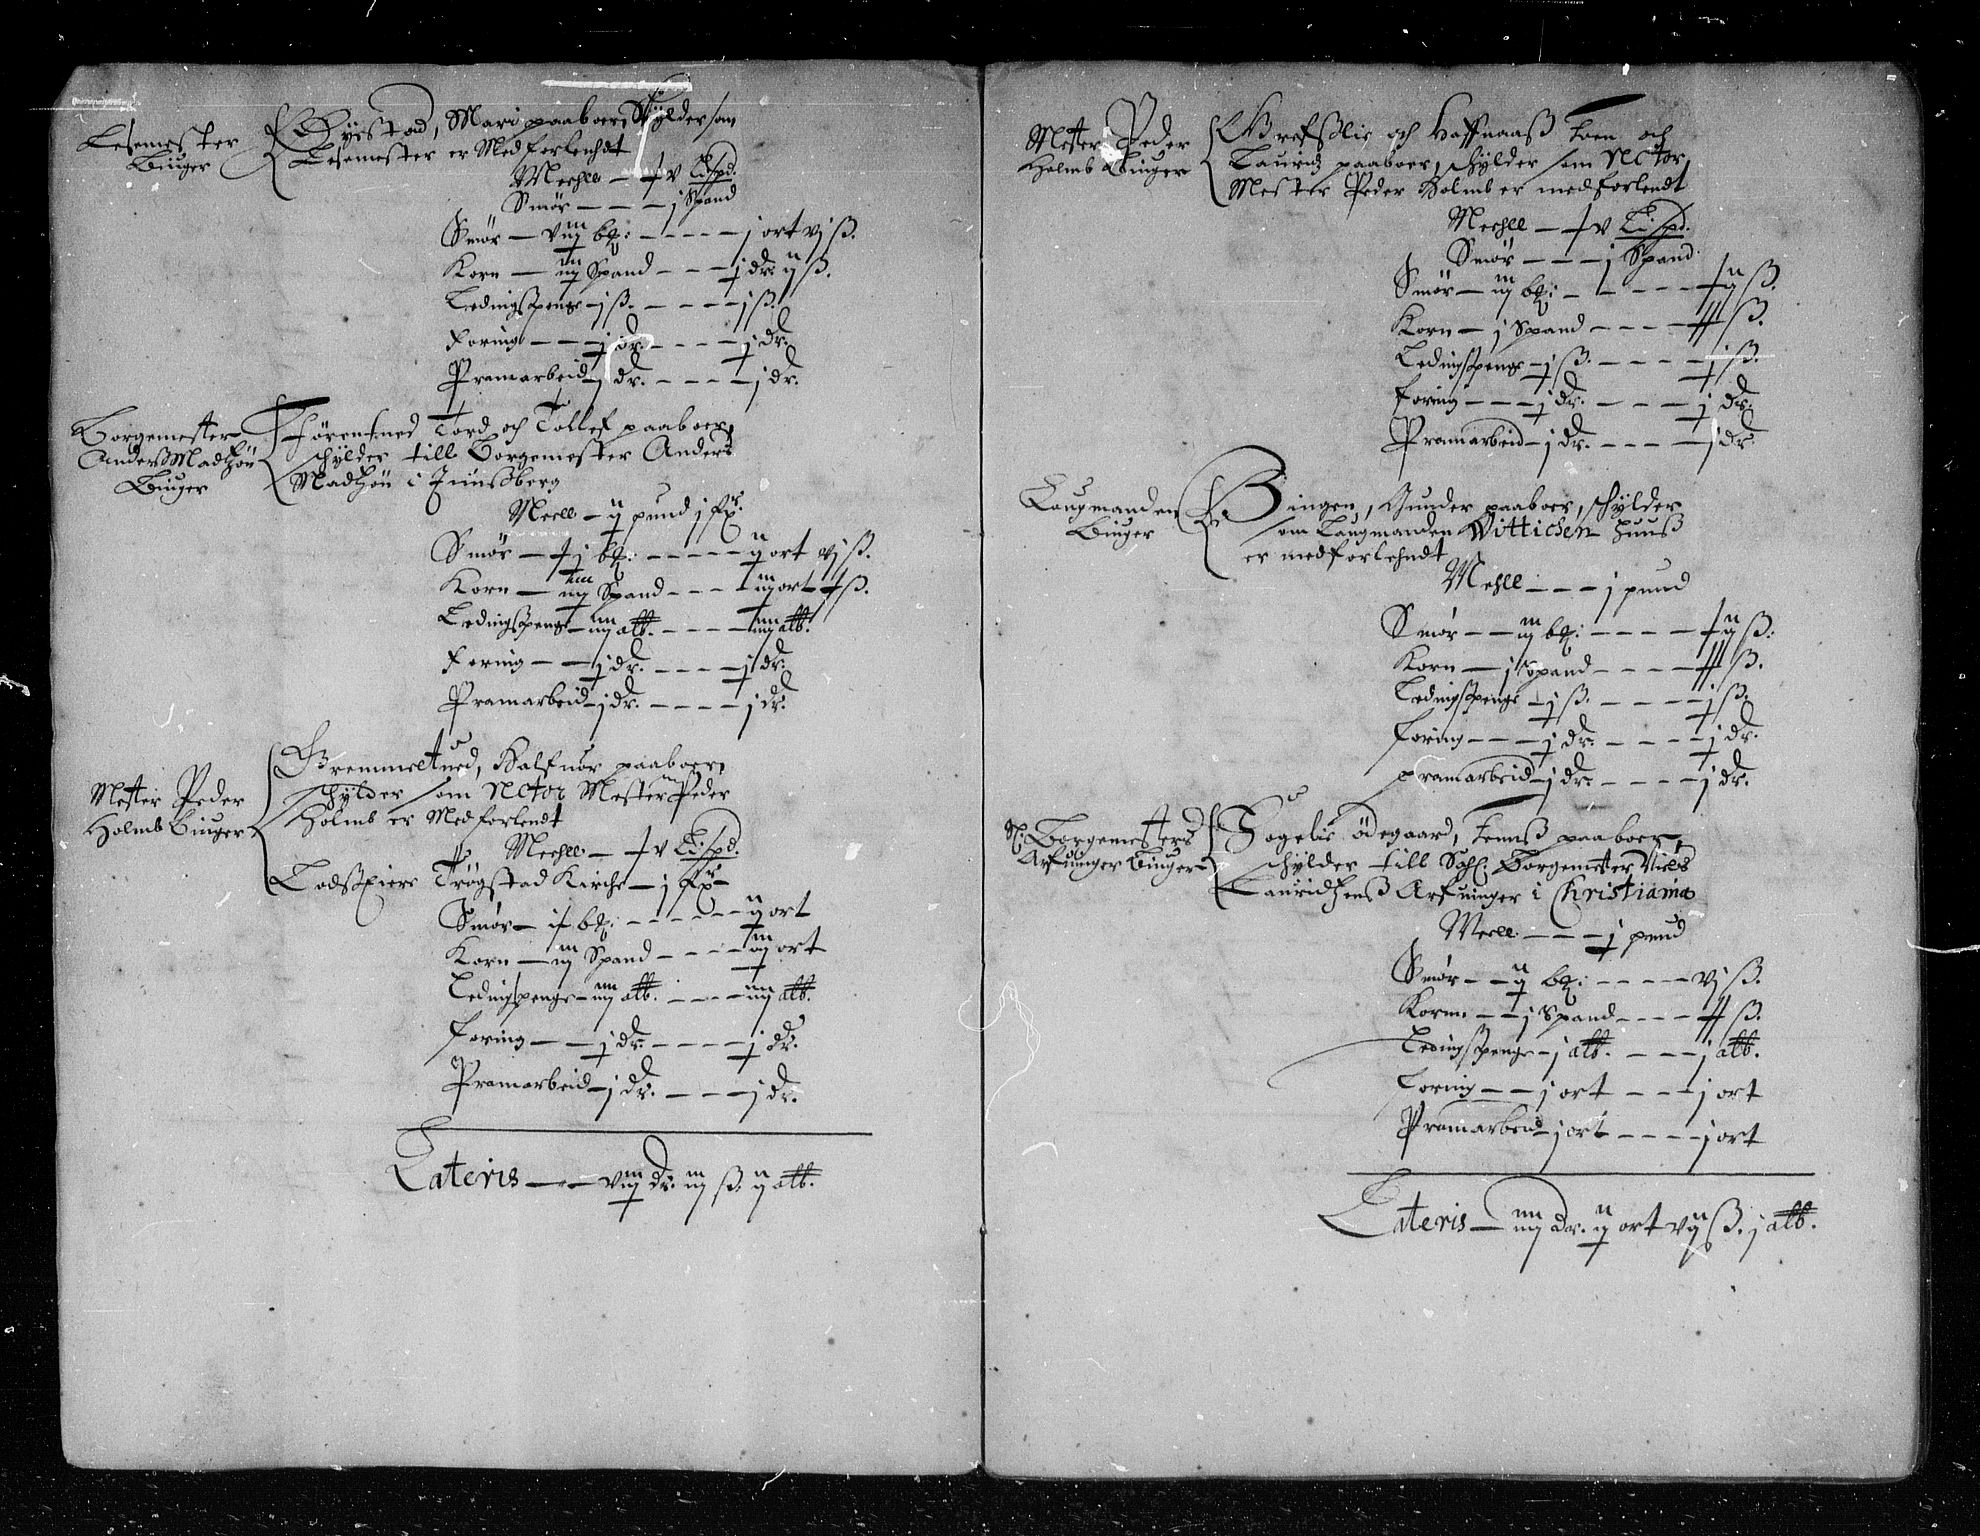 Lesemester
Biuger
Øyestad, Mari paaboer, Skylder som
Lesemester er Medforlenhdt
Meehll — ꝉ v Lispd.
Smør — — — j Spand
Smør — viij bḡ: — — — j ort vj ß.
Korn — iij Spand — — — j dr. ij ß.
Ledingspenge — j ß. — — — j ß.
Foring — — j dr. — — — j dr.
Pramarbeid — j dr. — — — j dr.
Borgemester
Anders Madtzøn
Biuger
Tord och Tollef paaboer,
schylder till Borgemester Anders
Madtzøn i Tunsberg
Meell — ij pund j fr
Smør — ꝉ j bḡ: — — — ij ort vj ß.
Korn — iiij Spand — — — iij ort ꝉ ß.
Ledingspenge — iiij alb. — — — iiij alb.
Foring — — j dr. — — — j dr.
Pramarbeid — j dr. — — — j dr.
Mester Peder
Holmb Biuger
Gremmeltued, Halfuor paaboer,
schylder som Rector Mester Peder
Holmb er Medforlendt
Meehll — ꝉ v Lispd.
Lodsseiere Trøgstad Kirche — j fr
Smør — bḡ: — — — ij ort
Korn — iij Spand — — — iij ort
Ledingspenge — iiij alb. — — — iiij alb.
Foring — — j dr. — — — j dr.
Pramarbeid — j dr. — — — j dr.
Lateris — — viij dr. iij ß. ij alb.
Mester Peder
Holmb Biuger
och Haffnaaß Joen och
Lauridz paaboer, schylder som Rector
Mester Peder Holmb er medforlendt
Meehll — ꝉ v Lispd.
Smør — — — j Spand
Smør — iij bḡ: — — — ꝉ ij ß.
Korn — j Spand — — — ß.
Ledingspenge — j ß. — — — j ß.
Foring — — — j dr. — — — j dr.
Pramarbeid — j dr. — — — j dr.
Laugmanden
Biuger
Bingen, Gunder paaboer, schylder
som Laugmanden Wittichen Huuß
er medforlehndt
Mehll — — — j pund
Smør — — iij bḡ: — — — ꝉ ij ß.
Korn — j Spand — — — ß.
Ledingspenge — j ß. — — — j ß.
Foring — — — j dr. — — — j dr.
Pramarbeid — j dr. — — — j dr.
Sl. Borgemesters
Arfuinger Biuger
ødegaard, Jenns paaboer,
schylder till Sahl. Borgemester Niels
Lauridtzens Arfuinger i Christiania
Meell — — — j pund
Smør — — ij bḡ: — — — vj ß.
Korn — — j Spand — — — ß.
Ledingspenge — j alb. — — — j alb.
Foring — — j ort — — — j ort
Pramarbeid — j ort — — — j ort
Lateris — iiij dr. ij ort vij ß. j alb.